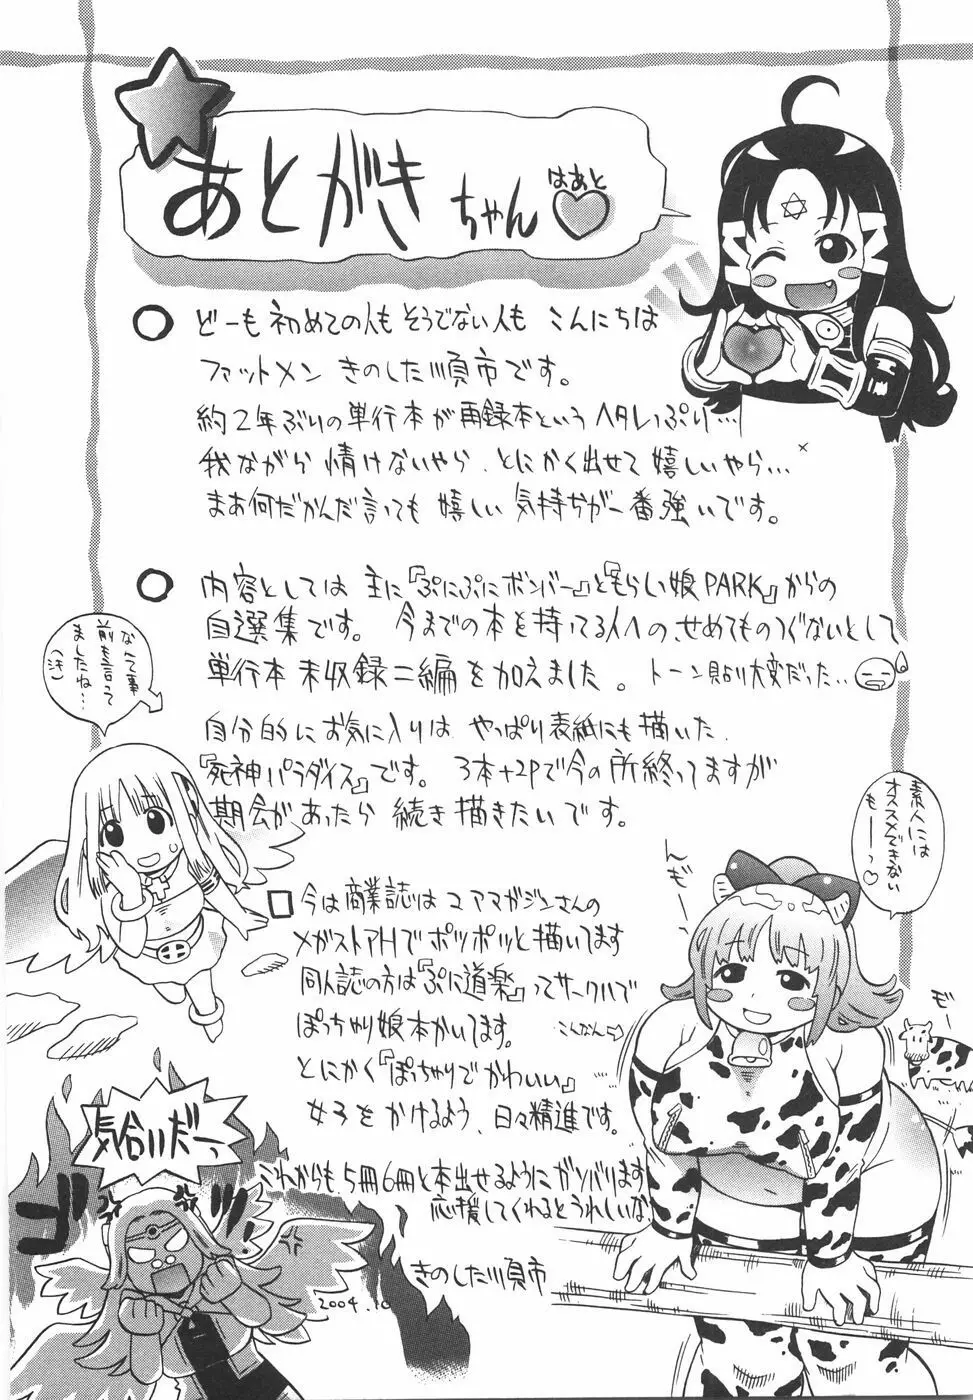 あとがきちゃん
はあと
どーも初めての人もそうでない人も こんにちは
ファットメン きのした順市です。
約2年ぶりの単行本が再録本というヘタレっぷり…
我ながら情けないやら、とにかく出せて嬉しいやら…
まあ何だかんだ言っても嬉しい気持ちが一番強いです。
内容としては主に『ぷにぷにボンバー』と『もらい娘PARK』からの
自選集です。 今までの本を持ってる人への、せめてものつぐないとして
単行本未収録二編を加えました。トーン貼り大変だった‥
自分的にお気に入りは やっぱり表紙にも描いた
『死神パラダイス』です。 3本+2Pで今の所終ってますが
期会があったら 続き描きたいです。
なんて事
前も言って
ましたね…
(汗)
素人には
オススメできない
もーーっ♡
んぎー
んぎー
モ゛ー
今は商業誌はコアマガジンさんの
メガストアHでポツポツと描いてます
同人誌の方は『ぷに道楽』ってサークルで
ぽっちゃり娘本かいてます。
こんなん⇨
とにかく『ぽっちゃりでかわいい』
女子をかけるよう、日々精進です。
これからも5冊6冊と本出せるようにガンバリます
応援してくれるとうれしいな
きのした順市
気合いだーっ
ゴゴ
2004.10